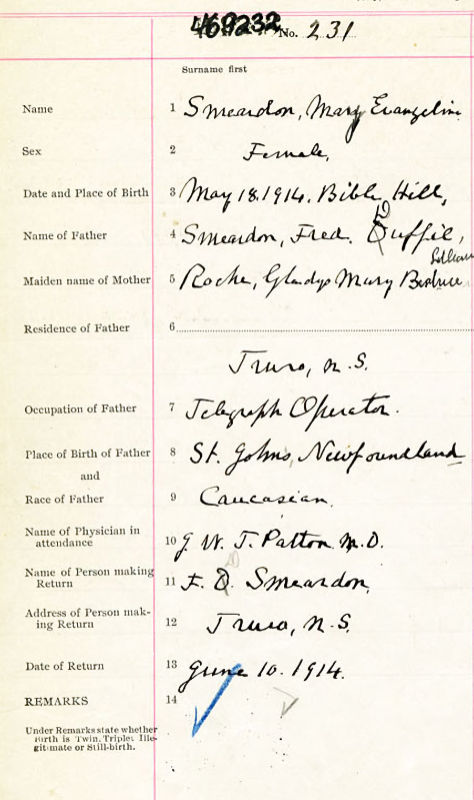 469232
No. 231
Surname first
Name 1 Smeardon, Mary Evangeline
Sex 2 Female,
Date and Place of Birth 3 May 18. 1914. Bible Hill,
Name of Father 4 Smeardon, Fred. Duffie,
Maiden name of Mother 5 Roche, Gladys Mary Beatrice
Residence of Father 6
Truro, N.S.
Occupation of Father 7 Telegraph Operator.
Place of Birth of Father 8 St. Johns, Newfoundland
and
Race of Father 9 Caucasian.
Name of Physician in
attendance 10 J. W. T. Patton M.D.
Name of Person making
Return 11 F. D. Smeardon,
Address of Person mak-
ing Return 12 Truro, N.S.
Date of Return 13 June 10. 1914.
REMARKS 14
Under Remarks state whether
Birth is Twin, Triplet, Ille-
gitimate or Still-birth.